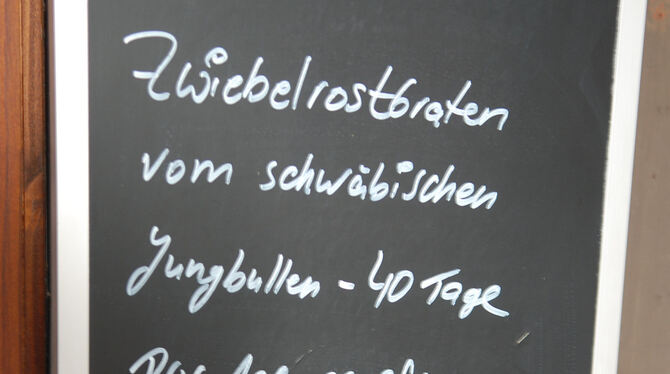 Zwiebelrostbraten
vom schwäbischen
Jungbullen - 40 Tage